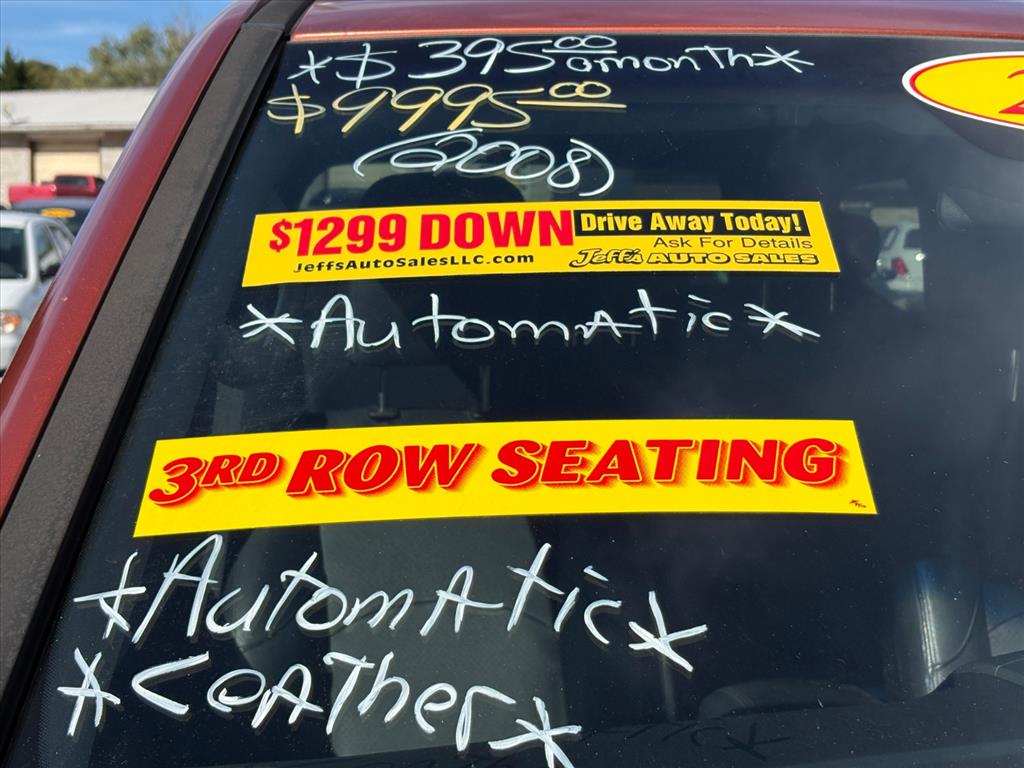 *$395.00 a month*
$9995.00
(2008)
$1299 DOWN Drive Away Today!
Ask For Details
JeffsAutoSalesLLC.com Jeff's AUTO SALES
*Automatic*
3RD ROW SEATING
*Automatic*
*Leather*